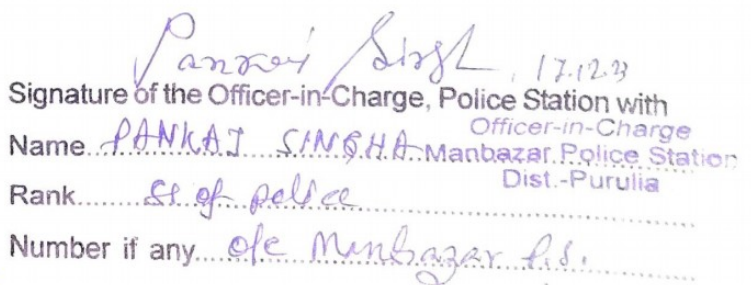 Pankaj Singh, 17.12.23
Signature of the Officer-in-Charge, Police Station with
Officer-in-Charge
Name PANKAJ SINGHA Manbazar Police Station
Dist.-Purulia
Rank SI of police
Number if any O/C Manbazar P.S.